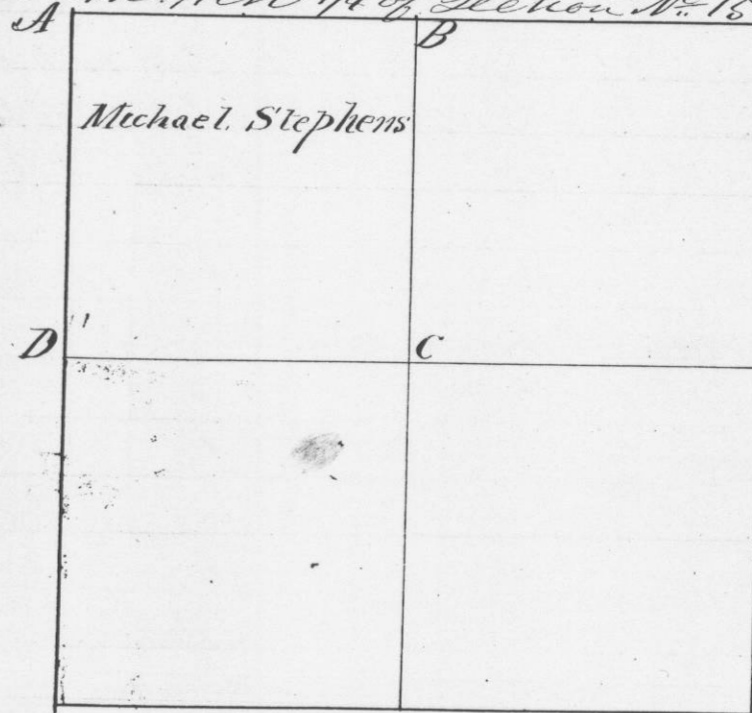 A
N.W. 1/4 of Section No. 15
B
Michael. Stephens
D
C